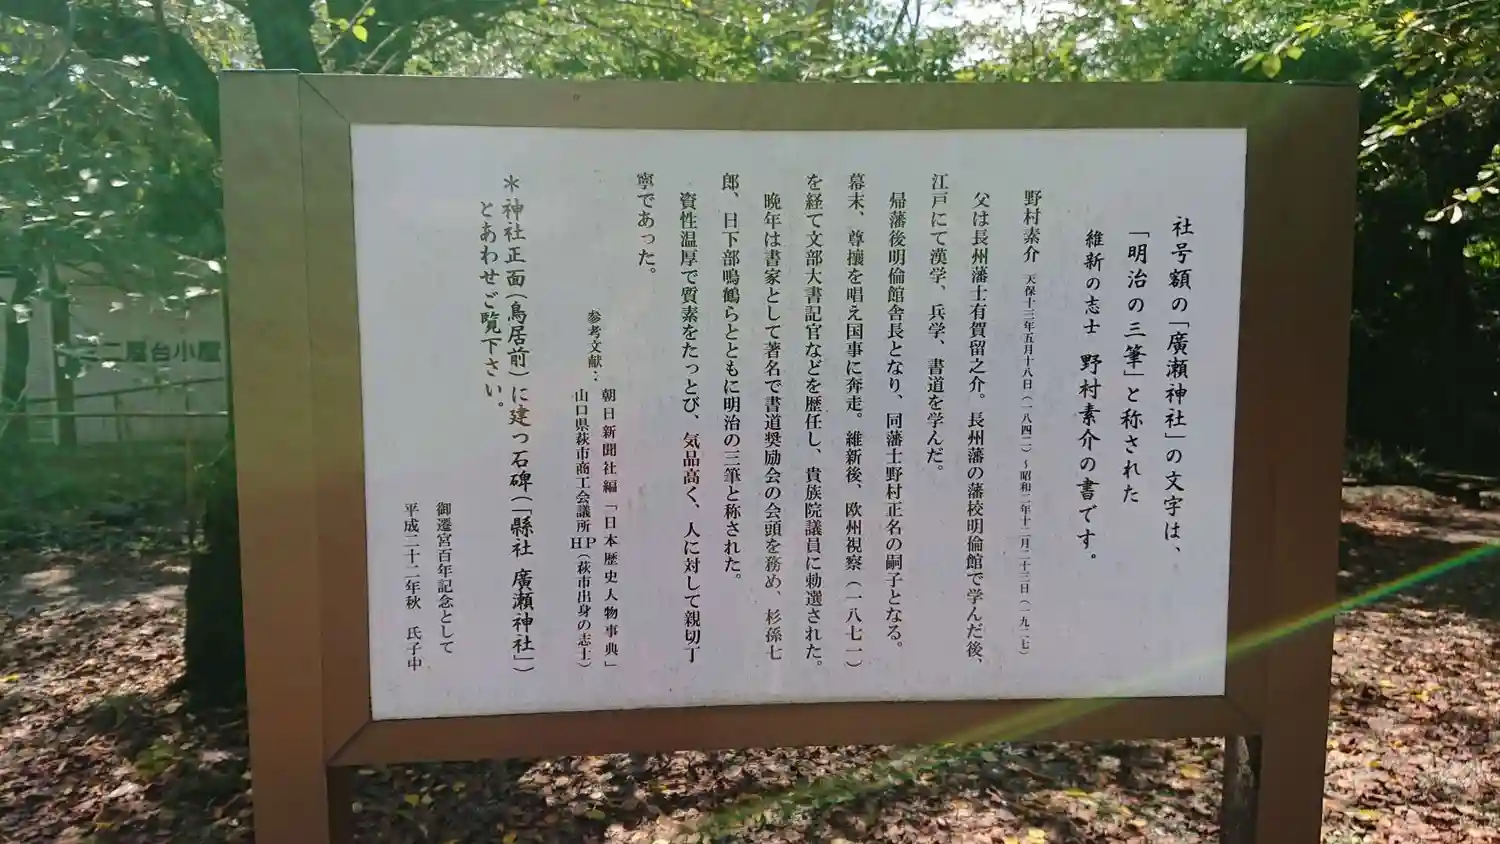 社号額の「廣瀬神社」の文字は、
「明治の三筆」と称された
維新の志士 野村素介の書です。
野村素介 天保十三年五月十八日(一八四二)~昭和二年十二月二十三日(一九二七)
父は長州藩士有賀留之介。長州藩の藩校明倫館で学んだ後、
江戸にて漢学、兵学、書道を学んだ。
帰藩後明倫館舎長となり、同藩士野村正名の嗣子となる。
幕末、尊攘を唱え国事に奔走。維新後、欧州視察(一八七一)
を経て文部大書記官などを歴任し、貴族院議員に勅選された。
晩年は書家として著名で書道奨励会の会頭を務め、杉孫七
郎、日下部鳴鶴らとともに明治の三筆と称された。
資性温厚で質素をたっとび、気品高く、人に対して親切丁
寧であった。
参考文献: 朝日新聞社編「日本歴史人物事典」
山口県萩市商工会議所HP(萩市出身の志士)
*神社正面(鳥居前)に建つ石碑(「縣社 廣瀬神社」)
とあわせご覧下さい。
御遷宮百年記念として
平成二十二年秋 氏子中
二屋台小屋